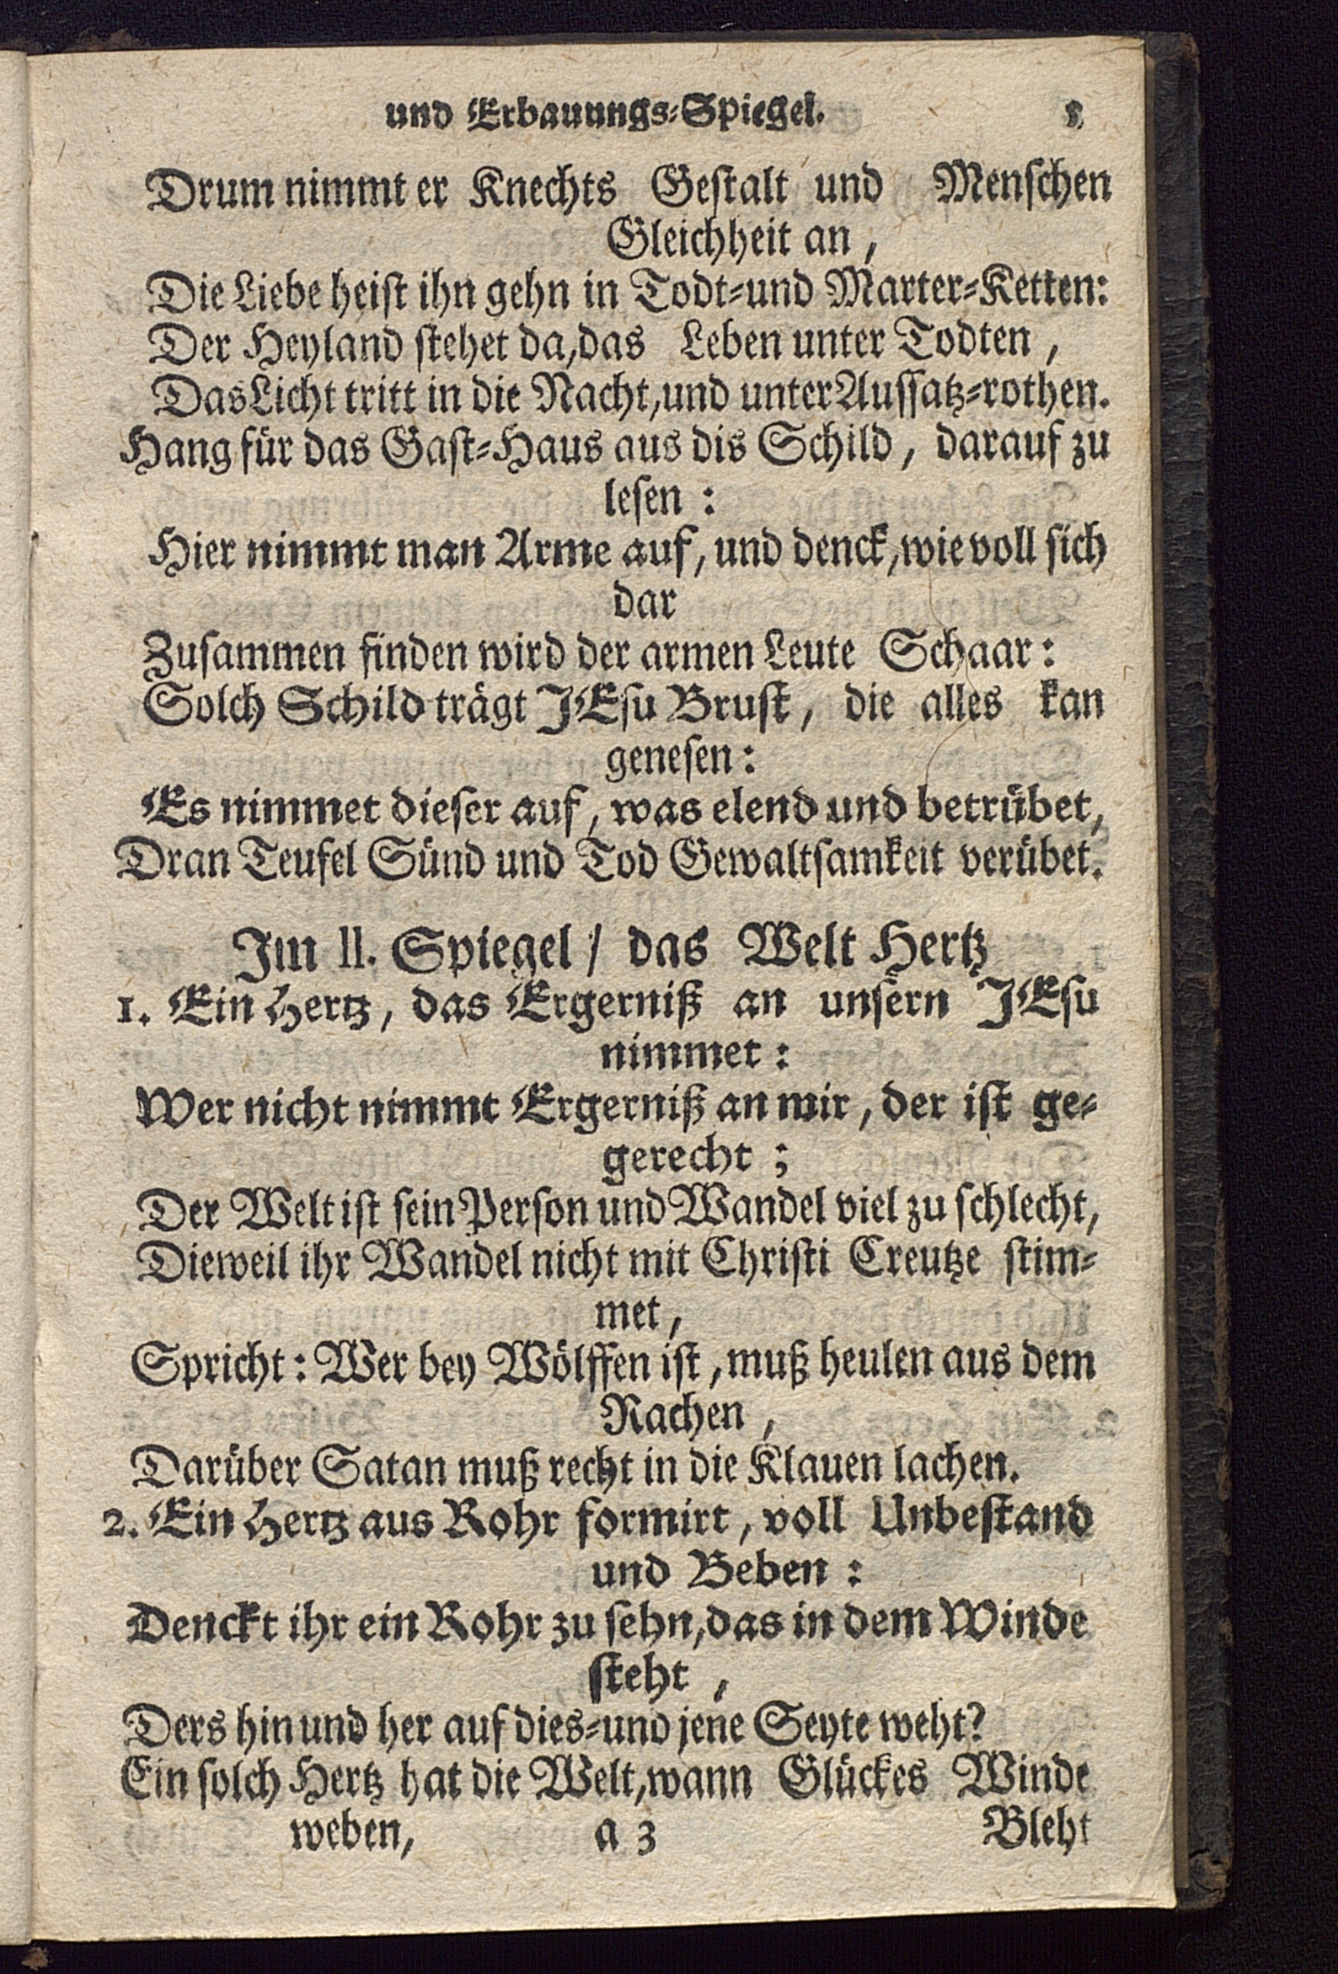 und Erbauungs-Spiegel.
Drum nimmt er Knechts Gestalt und Menschen
Gleichheit an,
Die Liebe heist ihn gehn in Todt-und Marter-Ketten:
Der Heyland stehet da, das Leben unter Todten,
Das Licht tritt in die Nacht, und unter Aussatz-rothen.
Hang für das Gast-Haus aus dis Schild, darauf zu
lesen:
Hier nimmt man Arme auf, und denck, wie voll sich
dar
Zusammen finden wird der armen Leute Schaar:
Solch Schild trägt JEsu Brust, die alles kan
genesen:
Es nimmet dieser auf, was elend und betrübet,
Dran Teufel Sünd und Tod Gewaltsamkeit verübet.
Im II. Spiegel / das Welt Hertz
1. Ein Hertz, das Ergerniß an unsern JEsu
nimmet:
Wer nicht nimmt Ergerniß an mir, der ist ge-
gerecht;
Der Welt ist sein Person und Wandel viel zu schlecht,
Dieweil ihr Wandel nicht mit Christi Creutze stim-
met,
Spricht: Wer bey Wölffen ist, muß heulen aus dem
Rachen,
Darüber Satan muß recht in die Klauen lachen.
2. Ein Hertz aus Rohr formirt, voll Unbestand
und Beben:
Denckt ihr ein Rohr zu sehn, das in dem Winde
steht,
Ders hin und her auf dies-und jene Seyte weht?
Ein solch Hertz hat die Welt, wann Glückes Winde
weben, a 3 Bleht